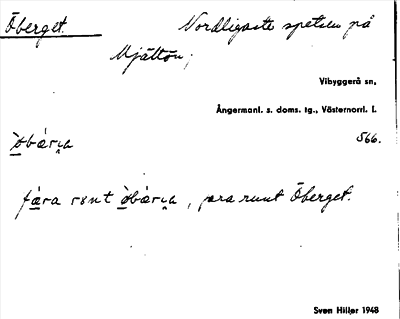 Öberget.
Nordligaste spetsen på
Mjältön;
Vibyggerå sn,
Ångermanl. s. doms. tg., Västernorrl. l.
566.
fara runt Öberget.
Sven Hiller 1948